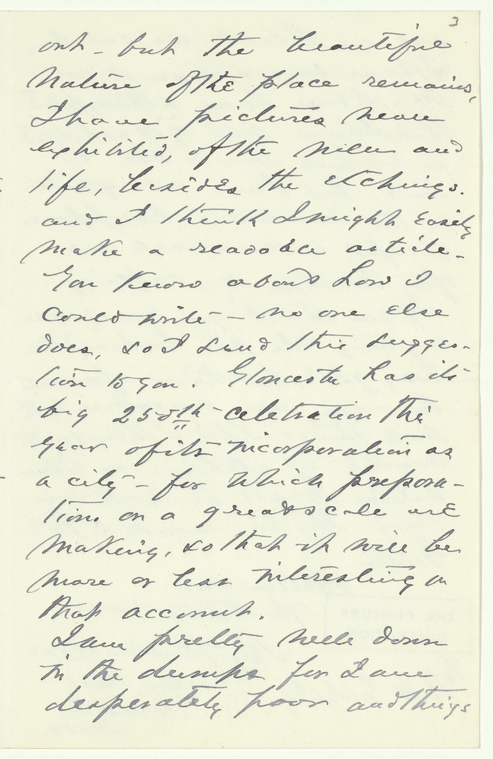 3
out - but the beautiful
nature of the place remains,
I have pictures never
exhibited, of the men and
life, besides the etchings.
and I think I might easily
make a readable article -
You know about how I
could write - no one else
does, so I send this sugges-
tion to you. Gloucester has its
big 250th celebration this
year of its incorporation as
a city - for which prepara-
tions on a great scale are
making, so that it will be
more or less interesting on
that account.
I am pretty well down
in the dumps for I am
desperately poor and things